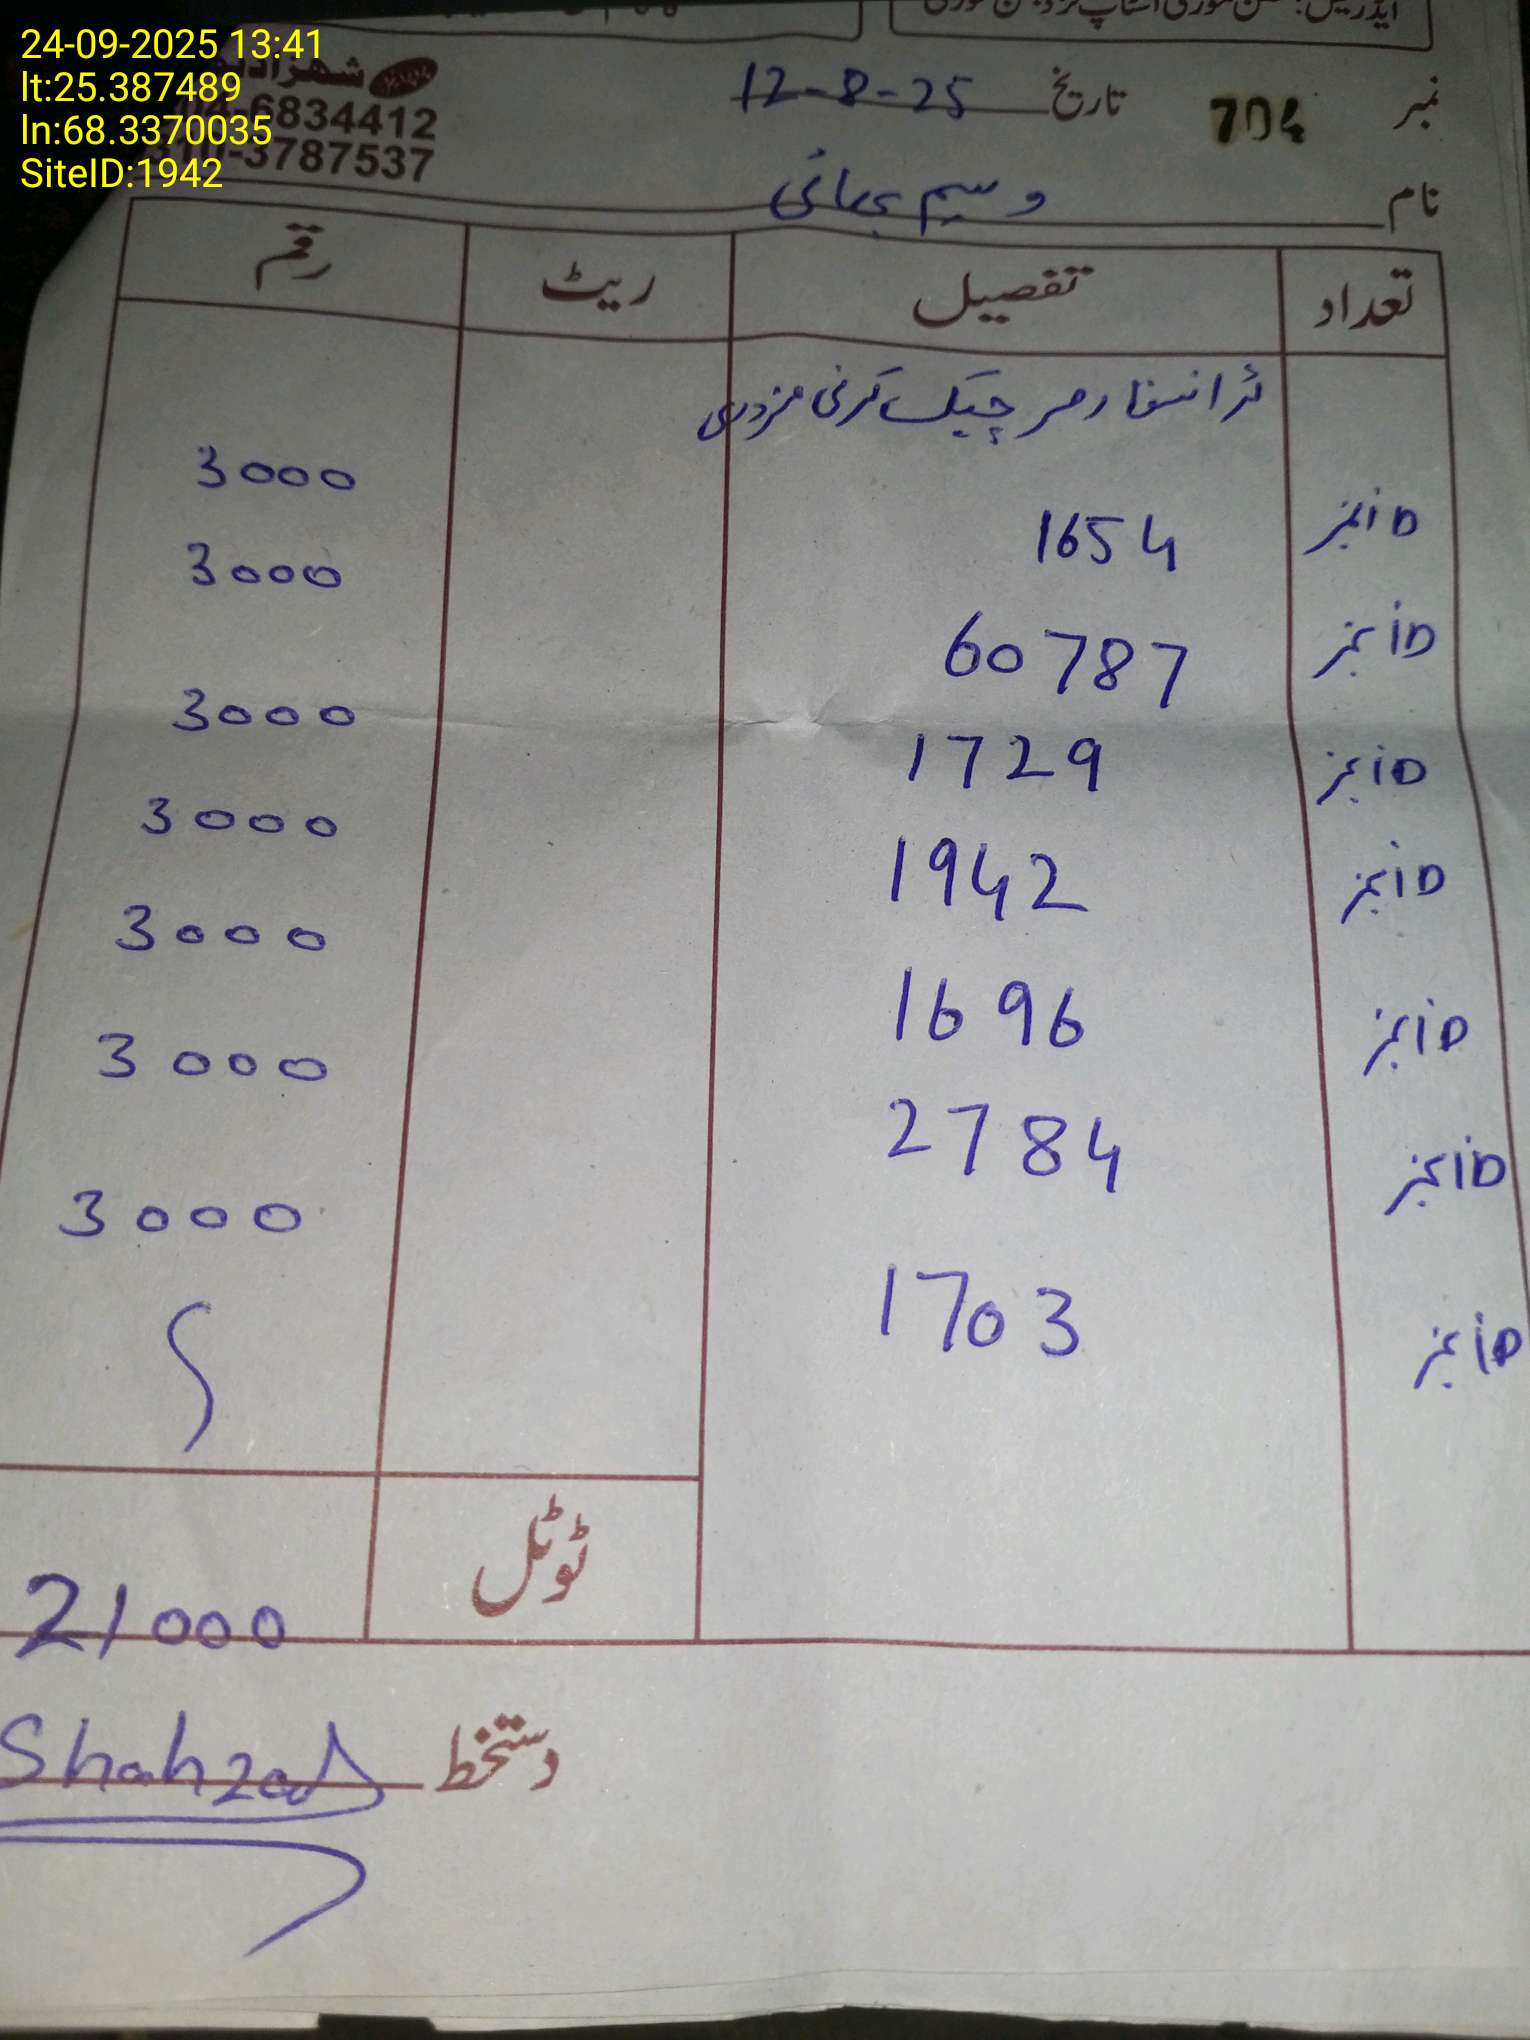 24-09-2025 13:41
lt:25.387489
ln:68.3370035
SiteID:1942
6834412
3787537
نمبر 704 تاریخ 12-8-25
نام وسیم بھائی
تعداد تفصیل ریٹ رقم
ٹرانسفارمر چیک کرنی مزدری
3000
ID نمبر 1654 3000
ID نمبر 60787 3000
ID نمبر 1729 3000
ID نمبر 1942 3000
ID نمبر 1696 3000
ID نمبر 2784 3000
ID نمبر 1703
ٹوٹل 21000
دستخط Shahzad